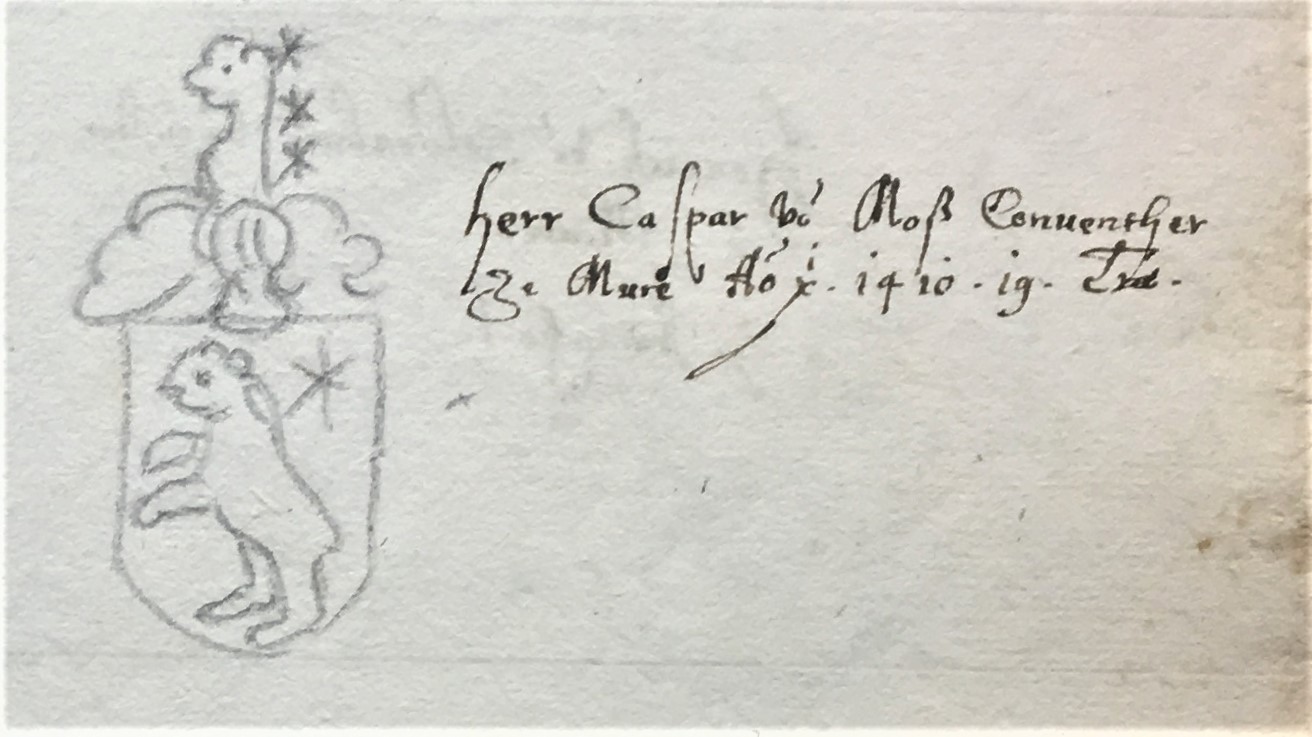 herr Caspar vō Moß Conuenther
Ze Murē Aō x. 1410. 19.